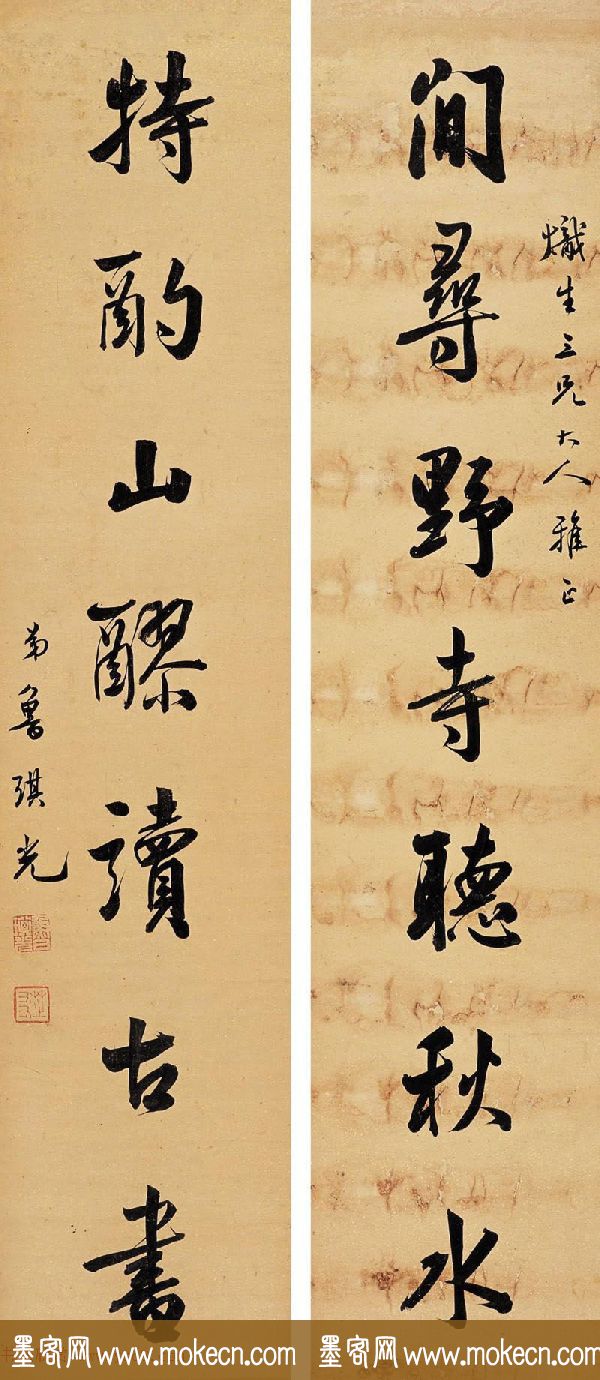 間尋野寺聽秋水
熾生三兄大人雅正
特酌山醪讀古書
魯琪光
墨客网 www.mokecn.com
墨客网 www.mokecn.com